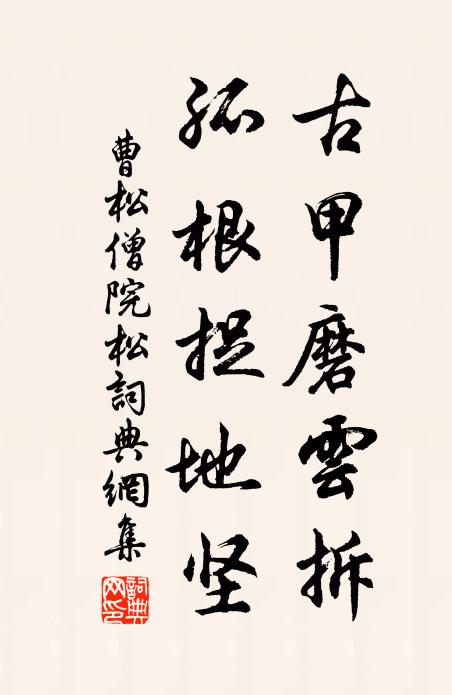 古甲磨雲拆
孤根捉地坚
曹松僧院松詞典網集
詞典网印